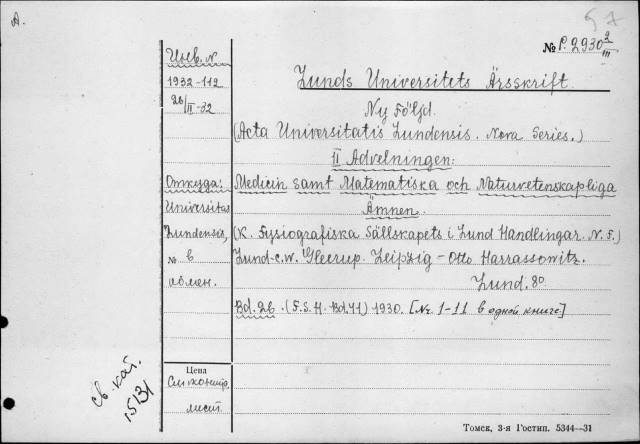 А.
57
№ P. 2930 2/III
Инв. N
1932-112
26/II-32
Lunds Universitets Ärsskrift
Ny Följd.
(Acta Universitatis Lundensis. Nova Series.)
II Advelningen:
Откуда:
Universitas
Lundensis,
№ в
обмен.
Medicin samt Matematiska och Naturvetenskapliga
Ämnen.
(K. Fysiografiska Sällskapets i Lund Handlingar. N. F.)
Lund-C.W. Gleerup. Leipzig - Otto Harrassowitz.
Lund. 8o
Bd. 26. (F.S.H. Bd. 41) 1930. [Nr. 1-11 в одной книге]
Цена
См.
лист.
св. кат.
15131
Томск, 3-я Гостип. 5344—31